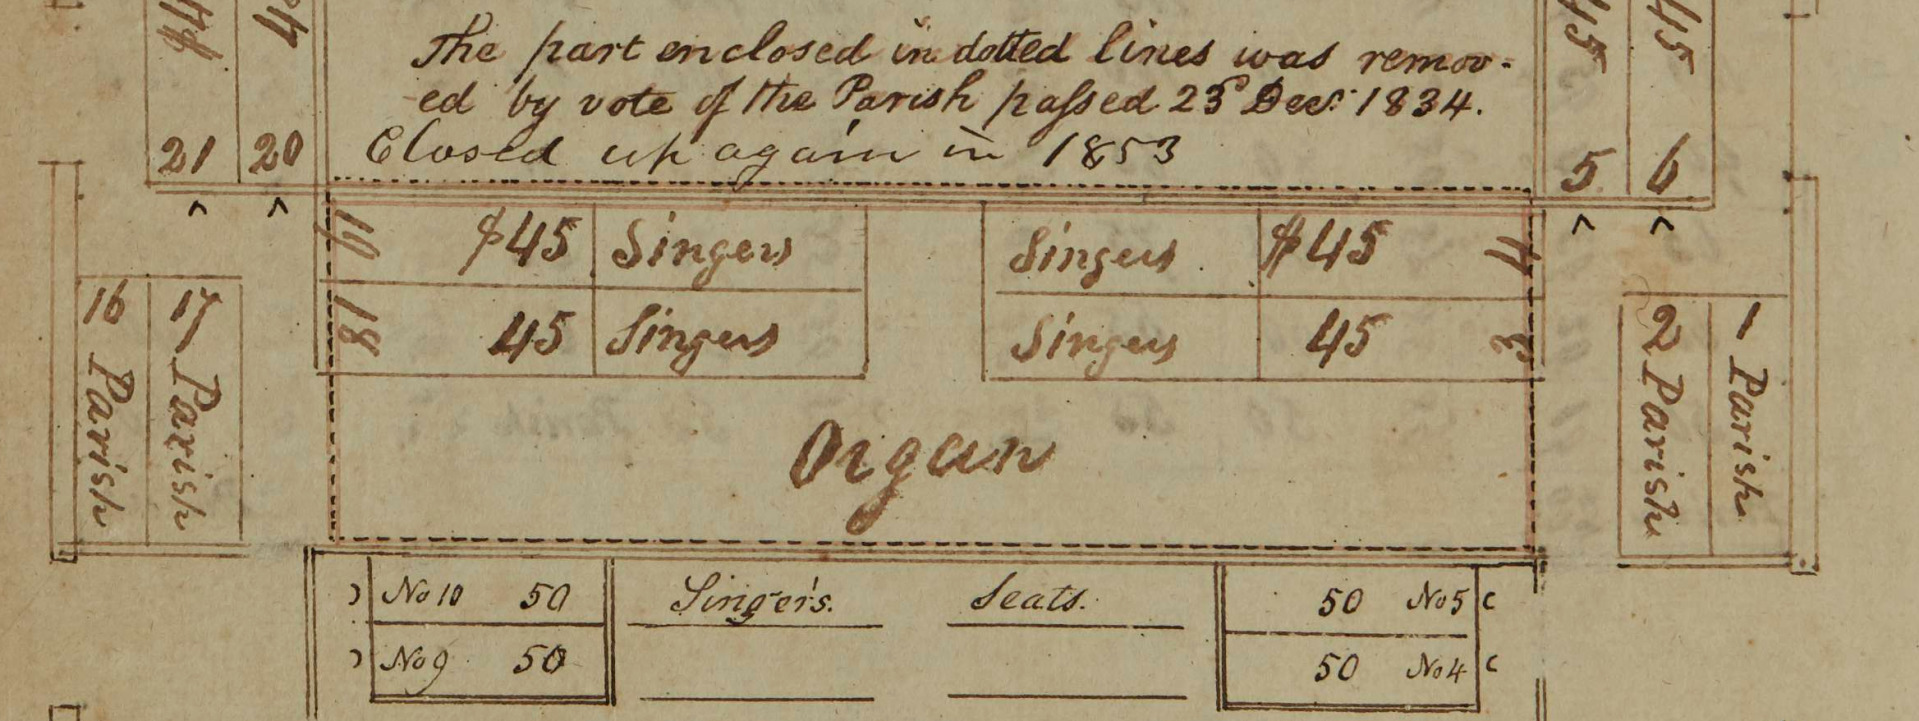 The part enclosed in dotted lines was remov-
ed by vote of the Parish passed 23d Decr. 1834.
Closed up again in 1853
21 20
5 6
45 45
19 $45 Singers
Singers $45 4
18 45 Singers
Singers 45 3
16 Parish
17 Parish
2 Parish
1 Parish
Organ
No 10 50 Singers. Seats. 50 No 5
No 9 50
50 No 4